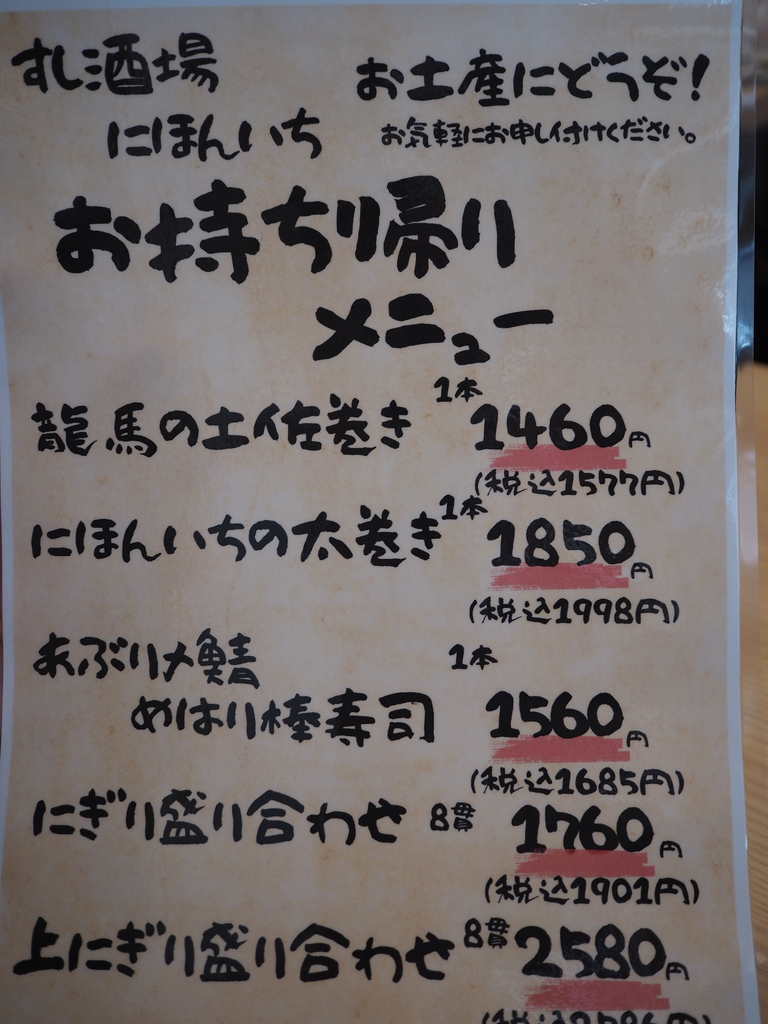 すし酒場
にほんいち
お土産にどうぞ!
お気軽にお申し付けください。
お持ち帰り
メニュー
龍馬の土佐巻き 1本 1460円
(税込1577円)
にほんいちの太巻き 1本 1850円
(税込1998円)
あぶり〆鯖 1本
めはり棒寿司 1560円
(税込1685円)
にぎり盛り合わせ 8貫 1760円
(税込1901円)
上にぎり盛り合わせ 8貫 2580円